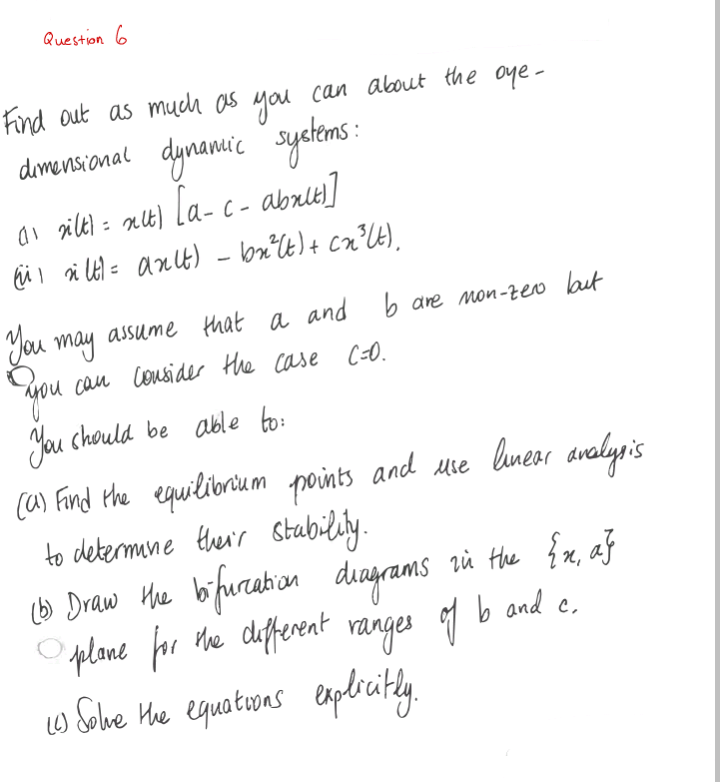 Question 6
Find out as much as you can about the oye-
dimensional dynamic systems:
(i) ẋ(t) = x(t) [a - c - abx(t)]
(ii) ẋ(t) = ax(t) - bx²(t) + cx³(t).
You may assume that a and b are non-zero but
you can consider the case C=0.
You should be able to:
(a) Find the equilibrium points and use linear analysis
to determine their stability.
(b) Draw the bifurcation diagrams in the {x, a}
plane for the different ranges of b and c.
(c) Solve the equations explicitly.